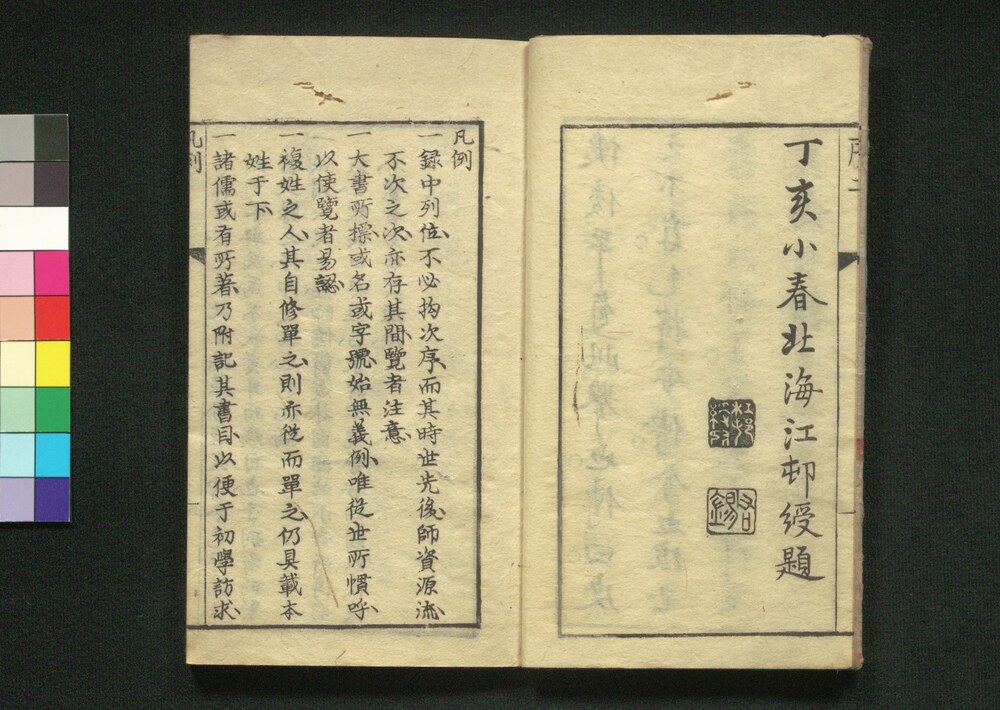 丁亥小春北海江邨綬題
江邨綬印
君錫
凡例
一錄中列位不必拘次序而其時世先後師資源流
不次之次亦存其間覽者注意
一大書所標或名或字號始無義例唯從世所慣呼
以使覽者易認
一複姓之人其自修單之則亦從而單之仍具載本
姓于下
一諸儒或有所著乃附記其書目以便于初學訪求
凡例